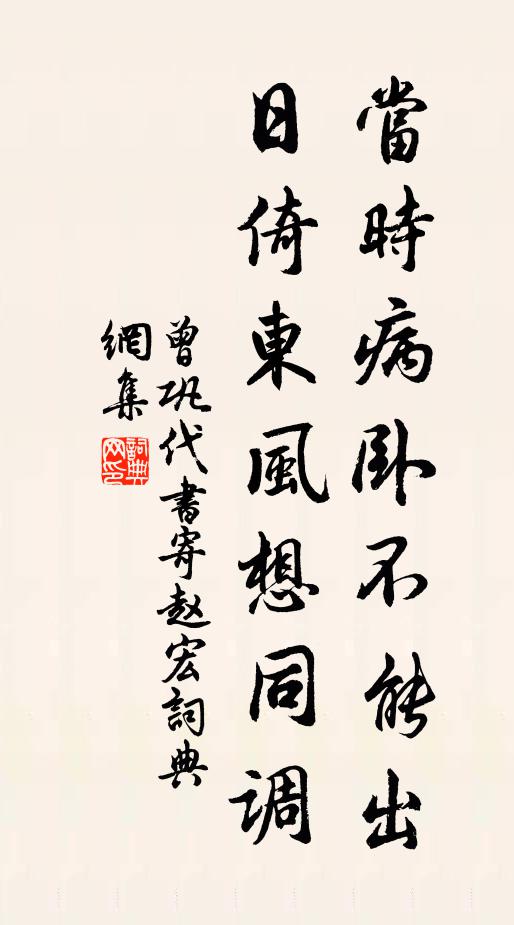 當時病卧不能出
日倚東風想同调
曾巩代書寄赵宏詞典
網集
詞典網印